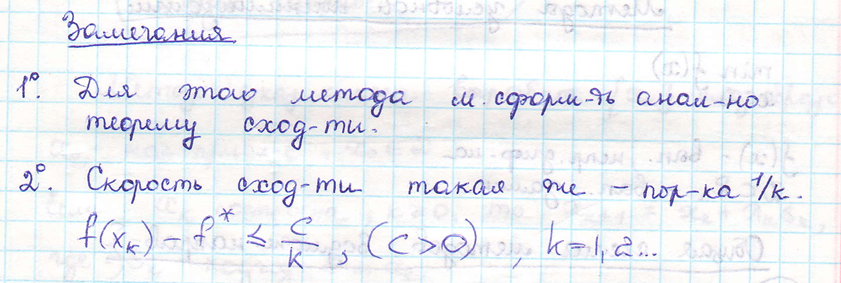 Замечания
1°. Для этого метода м. сформ-ть анал-но
теорему сход-ти.
2°. Скорость сход-ти такая же – пор-ка 1/k.
f(x_k) – f* ≤ c/k, (c>0), k=1,2...